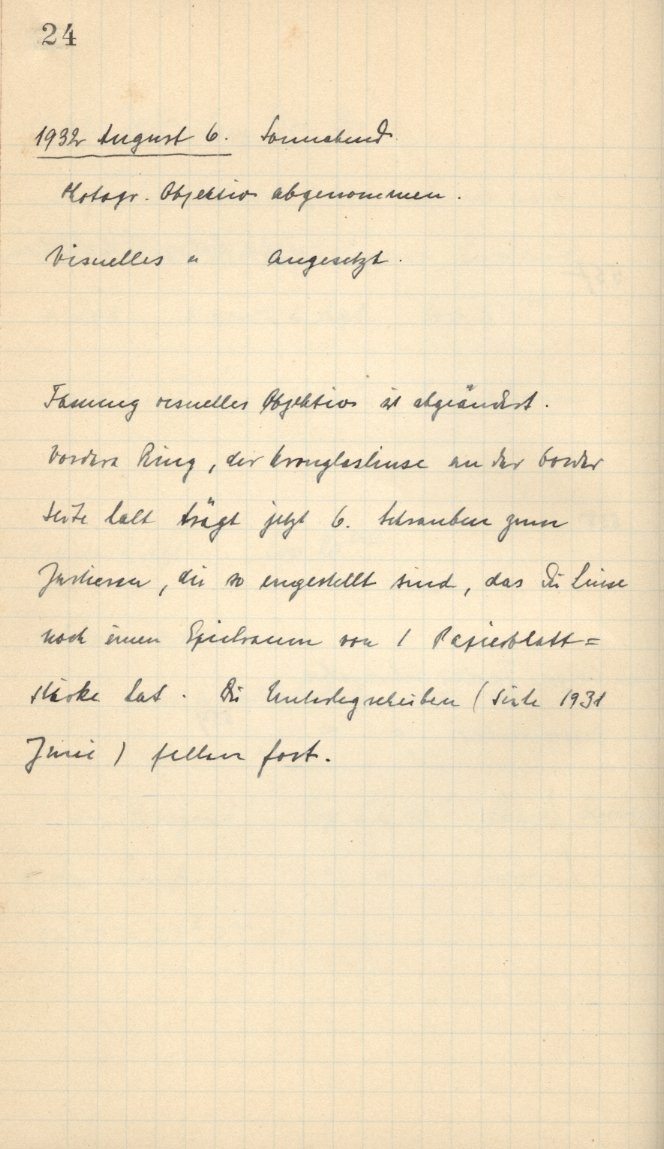 24
1932 August 6. Sonnabend
Photogr. Objektiv abgenommen.
Visuelles " angesetzt.
Fassung visuelles Objektiv ist abgeändert.
Vordere Ring, der Kronglaslinse an der Vorder
Seite hält trägt jetzt 6. Schrauben zum
Justieren, die so eingestellt sind, das die Linse
noch einen Spielraum von 1 Papierblatt=
stärke hat. Die Unterlegscheiben (siehe 1931
Juni) fallen fort.